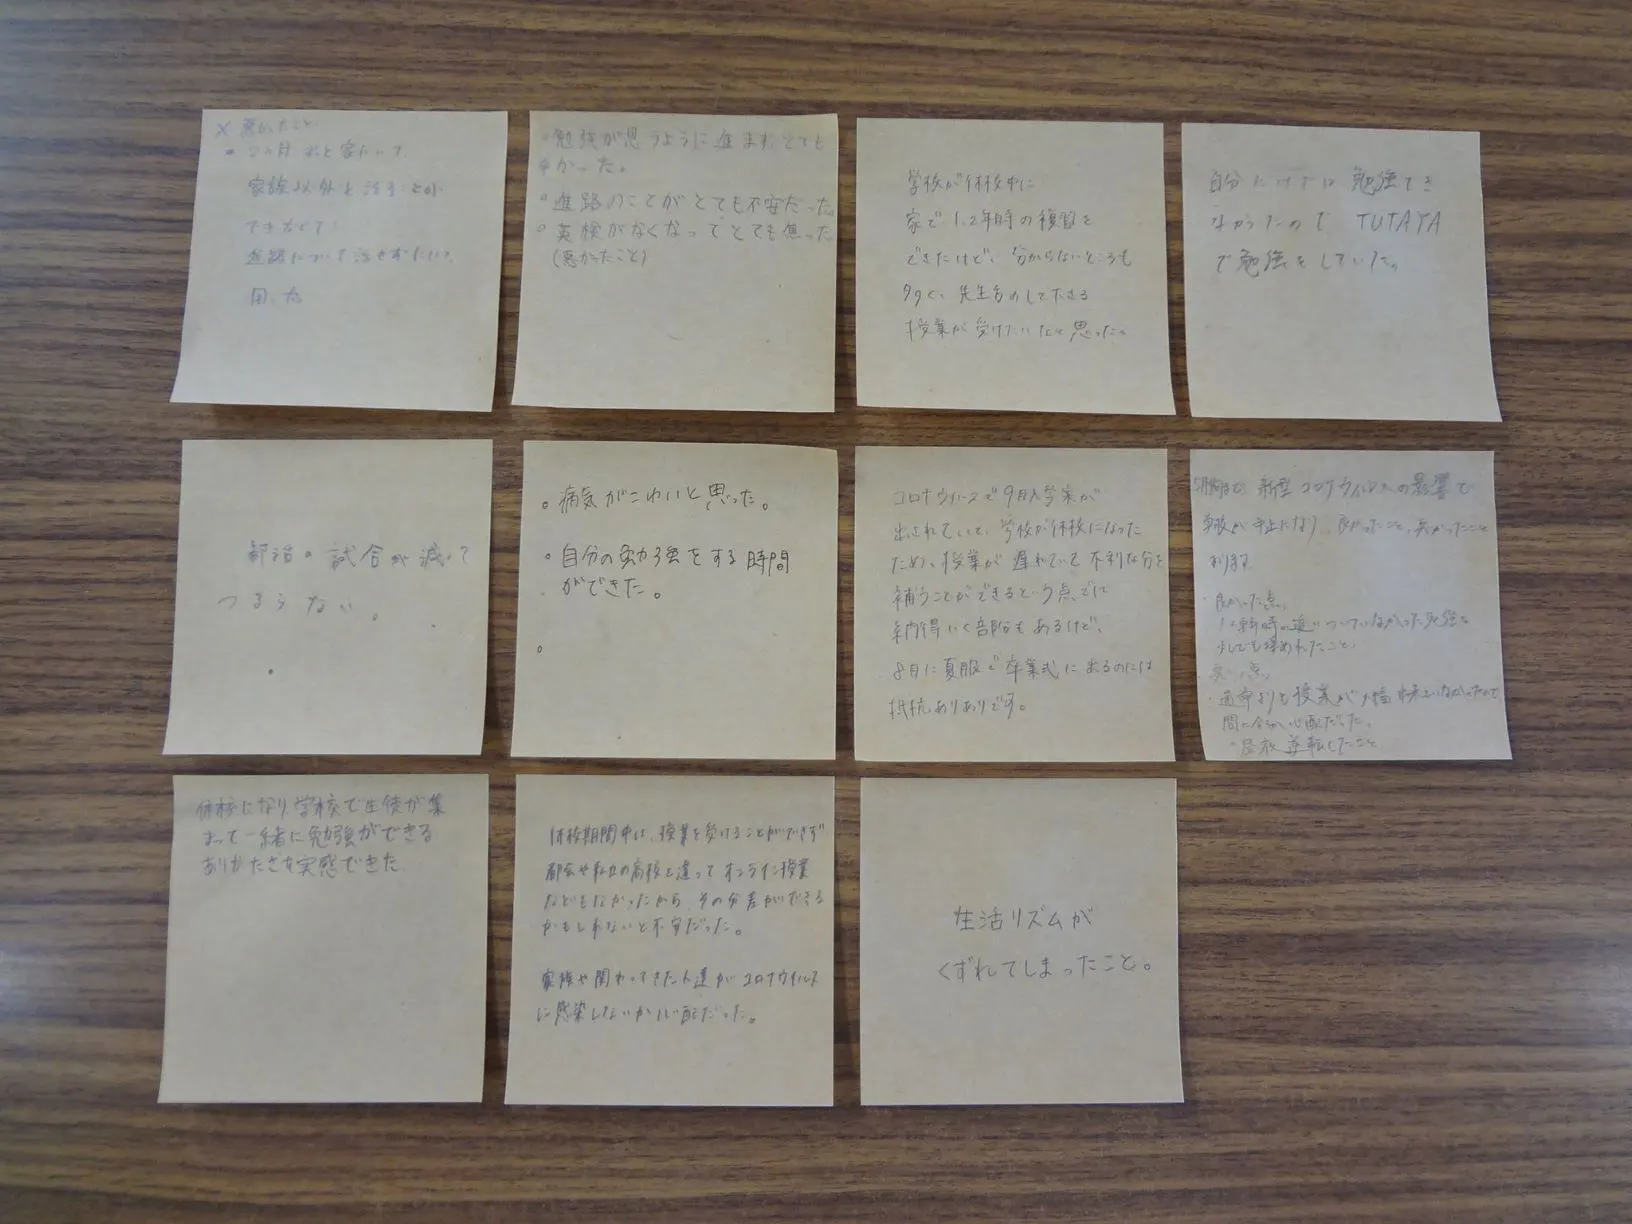 × 悪かったこと
家族以外と話すことが
できなくて
進路について話せずたいへん
困った
勉強が思うように進まずとても
辛かった。
進路のことがとても不安だった。
英検がなくなってとても焦った
(悪かったこと)
学校が休校中に
家で1.2年時の複習を
できたけど、分からないところも
多く、先生方のしてださる
授業が受けたいなと思った。
自分だけでは勉強でき
なかったので TUTAYA
で勉強をしていた。
部活の試合が減って
つまらない。
。病気がこわいと思った。
。自分の勉強をする時間
ができた。
。
コロナウイルスで9月入学案が
出されていて、学校が休校になった
ため、授業が遅れていて不利な分を
補うことができるという点では
納得いく部分もあるけど、
8月に夏服で卒業式に出るのには
抵抗ありありです。
新型コロナウイルスの影響で
良かったこと、
あります
・良かった点、
少しでも埋められたこと、
・通常よりも授業が
心配だった。
・昼夜逆転したこと
休校になり学校で生徒が集
まって一緒に勉強ができる
ありがたさを実感できた
休校期間中は、授業を受けることができず
都会や私立の高校と違ってオンライン授業
などもなかったから、その分差ができる
かもしれないと不安だった。
家族や関わってきた人達がコロナウイルス
に感染しないか心配だった。
生活リズムが
くずれてしまったこと。